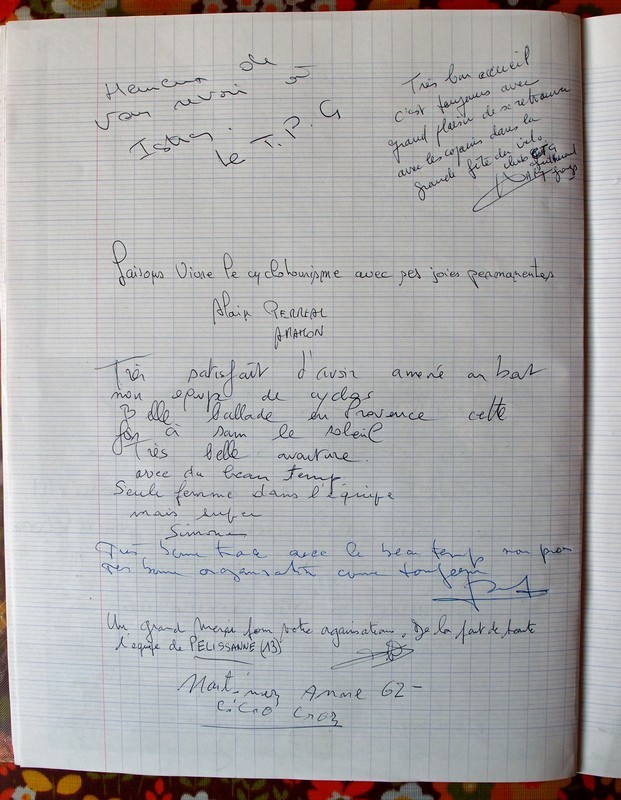 Heureux de
vous revoir à
Istres.
Le T.P.G
Très bon accueil
c'est toujours avec
grand plaisir de se retrouver
avec les copains dans la
grande fête du vélo.
club
Faisons vivre le cyclotourisme avec ses joies permanentes
Alain PERREAL
ARAMON
Très satisfait d'avoir amené au but
mon équipe de cyclos
Belle ballade en Provence cette
fois à sam le soleil
Très belle avanture.
avec du beau temp.
Seule femme dans l'équipe
mais super
Simone
Très bonne trace avec le beau temp
Très bonne organisation comme toujours
Un grand Merçi pour votre organisations. De la part de toute
l'équipe de PELISSANNE (13)
Martinez Anne 62-